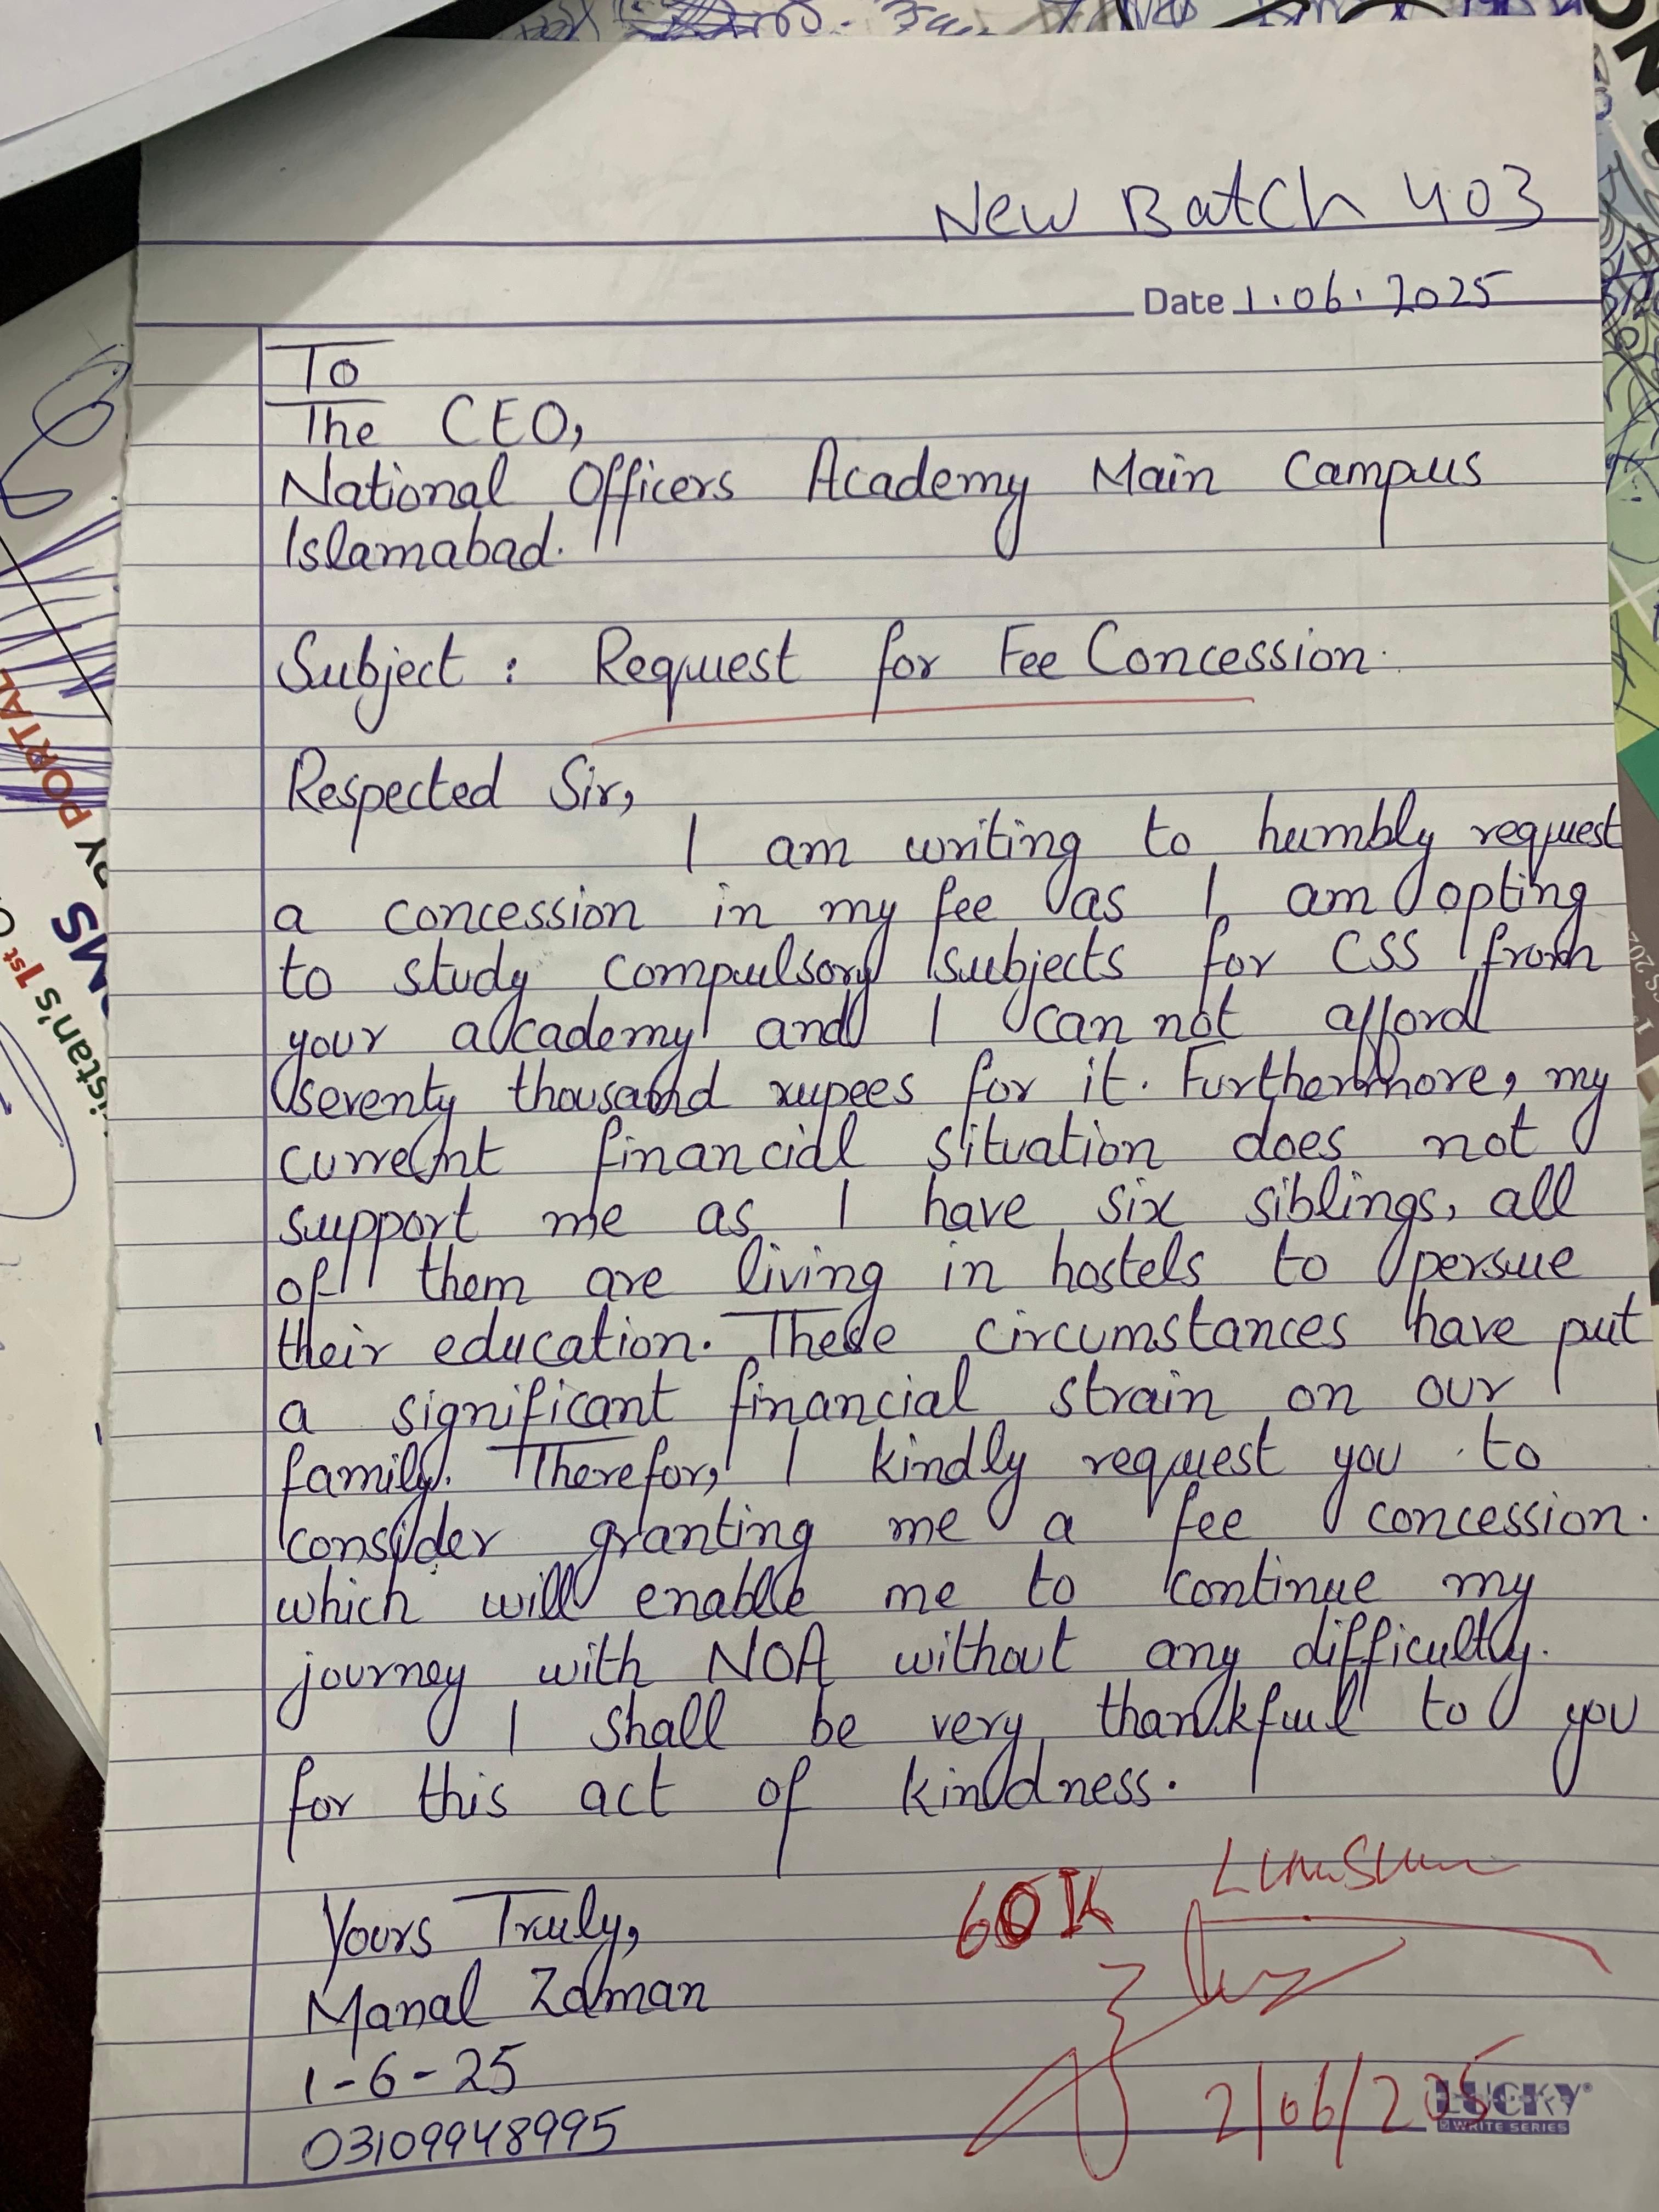 New Batch 403
Date 1.06.2025
To
The CEO,
National Officers Academy Main Campus
Islamabad.
Subject : Request for Fee Concession.
Respected Sir,
I am writing to humbly request
a concession in my fee as I am opting
to study compulsory subjects for CSS from
your academy and I can not afford
seventy thousand rupees for it. Furthermore, my
current financial situation does not
support me as I have six siblings, all
of them are living in hostels to persue
their education. These circumstances have put
a significant financial strain on our
family. Therefor, I kindly request you to
consider granting me a fee concession.
which will enable me to continue my
journey with NOA without any difficulty.
I shall be very thankful to you
for this act of kindness.
Yours Truly,
Manal Zaman
1-6-25
03109948995
60K
LumSum
2/06/2025
LUCKY®
WRITE SERIES
PORTAL
istan's 1st